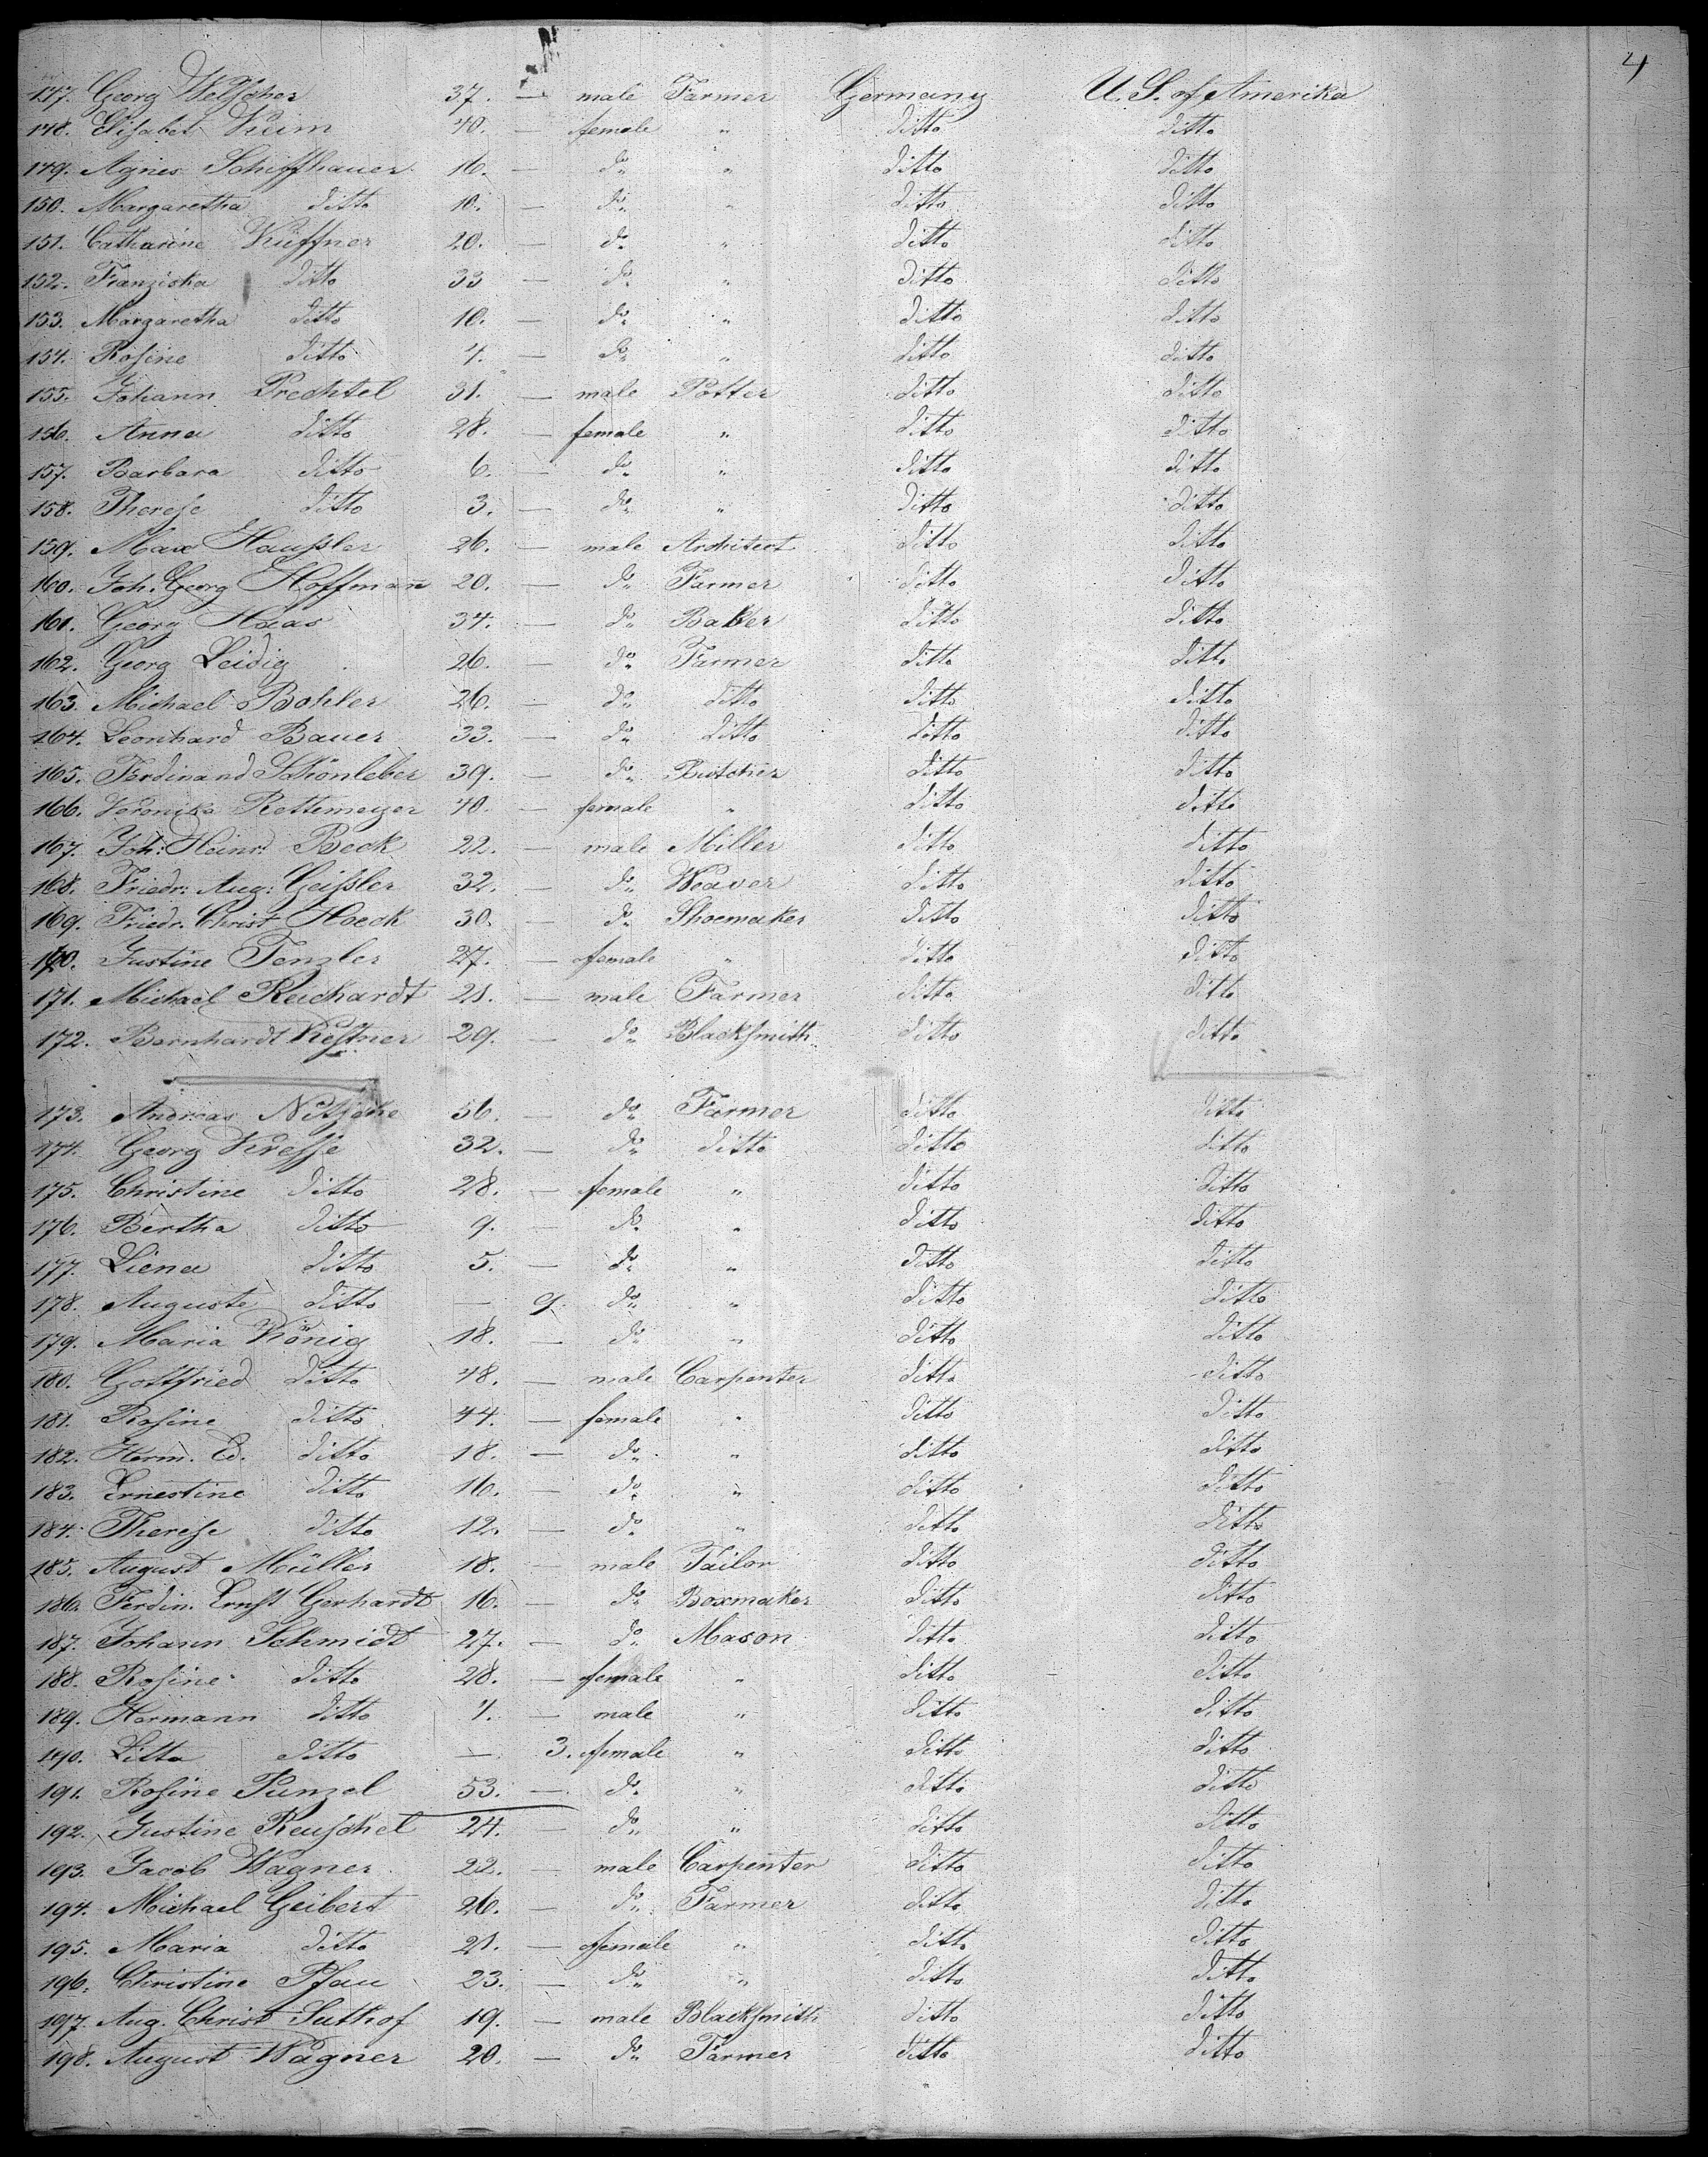 4
147. Georg Welscher 37. — male Farmer Germany U. S. of Amerika
148. Elisabet Keim 40. — female " ditto ditto
149. Agnes Schiffhauer 16. — do " ditto ditto
150. Margaretha ditto 10. — do " ditto ditto
151. Catharine Küffner 20. — do " ditto ditto
152. Franziska ditto 33 — do " ditto ditto
153. Margaretha ditto 10. — do " ditto ditto
154. Rosine ditto 4. — do " ditto ditto
155. Johann Prechtel 31. — male Potter ditto ditto
156. Anna ditto 28. — female " ditto ditto
157. Barbara ditto 6. — do " ditto ditto
158. Therese ditto 3. — do " ditto ditto
159. Max Haussler 26. — male Architect ditto ditto
160. Joh. Georg Hoffmann 20. — do Farmer ditto ditto
161. Georg Haas 34. — do Baker ditto ditto
162. Georg Leidig 26. — do Farmer ditto ditto
163. Michael Bohler 26. — do ditto ditto ditto
164. Leonhard Bauer 33. — do ditto ditto ditto
165. Ferdinand Schönleber 39. — do Butcher ditto ditto
166. Veronika Rettemeyer 40. — female " ditto ditto
167. Joh: Heinr: Beck 22. — male Miller ditto ditto
168. Friedr: Aug: Geissler 32. — do Weaver ditto ditto
169. Friedr. Christ Hoeck 30. — do Shoemaker ditto ditto
170. Justine Tenzler 27. — female " ditto ditto
171. Michael Reichardt 21. — male Farmer ditto ditto
172. Bernhardt Kestner 29. — do Blacksmith ditto ditto
173. Andreas Nitzsche 56. — do Farmer ditto ditto
174. Georg Kresse 32. — do ditto ditto ditto
175. Christine ditto 28. — female " ditto ditto
176. Bertha ditto 9. — do " ditto ditto
177. Liena ditto 5. — do " ditto ditto
178. Auguste ditto — 9. do " ditto ditto
179. Maria König 18. — do " ditto ditto
180. Gottfried ditto 48. — male Carpenter ditto ditto
181. Rosine ditto 44. — female " ditto ditto
182. Herm. Ed. ditto 18. — do " ditto ditto
183. Ernestine ditto 16. — do " ditto ditto
184. Therese ditto 12. — do " ditto ditto
185. August Müller 18. — male Tailor ditto ditto
186. Ferdin. Ernst Gerhardt 16. — do Boxmaker ditto ditto
187. Johann Schmidt 27. — do Mason ditto ditto
188. Rosine ditto 28. — female " ditto ditto
189. Hermann ditto 4. — male " ditto ditto
190. Litta ditto — 3. female " ditto ditto
191. Rosine Punzel 53. — do " ditto ditto
192. Justine Reuschel 24. — do " ditto ditto
193. Jacob Wagner 22. — male Carpenter ditto ditto
194. Michael Geibert 26. — do Farmer ditto ditto
195. Maria ditto 21. — female " ditto ditto
196. Christine Pfau 23. — do " ditto ditto
197. Aug. Christ Suthof 19. — male Blacksmith ditto ditto
198. August Wagner 20. — do Farmer ditto ditto